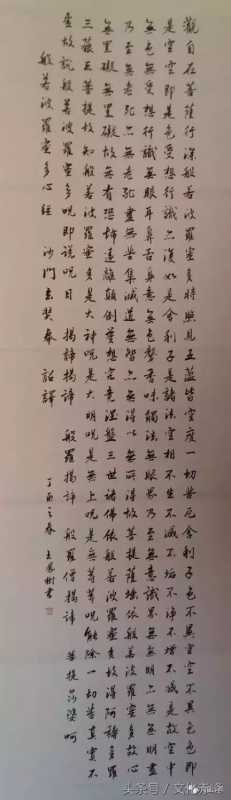 觀自在菩薩行深般若波羅蜜多時照見五蘊皆空度一切苦厄舍利子色不異空空不異色色即
是空空即是色受想行識亦復如是舍利子是諸法空相不生不滅不垢不淨不增不減是故空中
無色無受想行識無眼耳鼻舌身意無色聲香味觸法無眼界乃至無意識界無無明亦無無明盡
乃至無老死亦無老死盡無苦集滅道無智亦無得以無所得故菩提薩埵依般若波羅蜜多故心
無罣礙無罣礙故無有恐怖遠離顛倒夢想究竟涅槃三世諸佛依般若波羅蜜多故得阿耨多羅
三藐三菩提故知般若波羅蜜多是大神咒是大明咒是無上咒是無等等咒能除一切苦真實不
虛故說般若波羅蜜多咒即說咒曰 揭諦揭諦 般羅揭諦 般羅僧揭諦 菩提莎婆訶
般若波羅蜜多心經 沙門玄奘奉 詔譯
丁酉之春 王鳳樹書
头条号 /